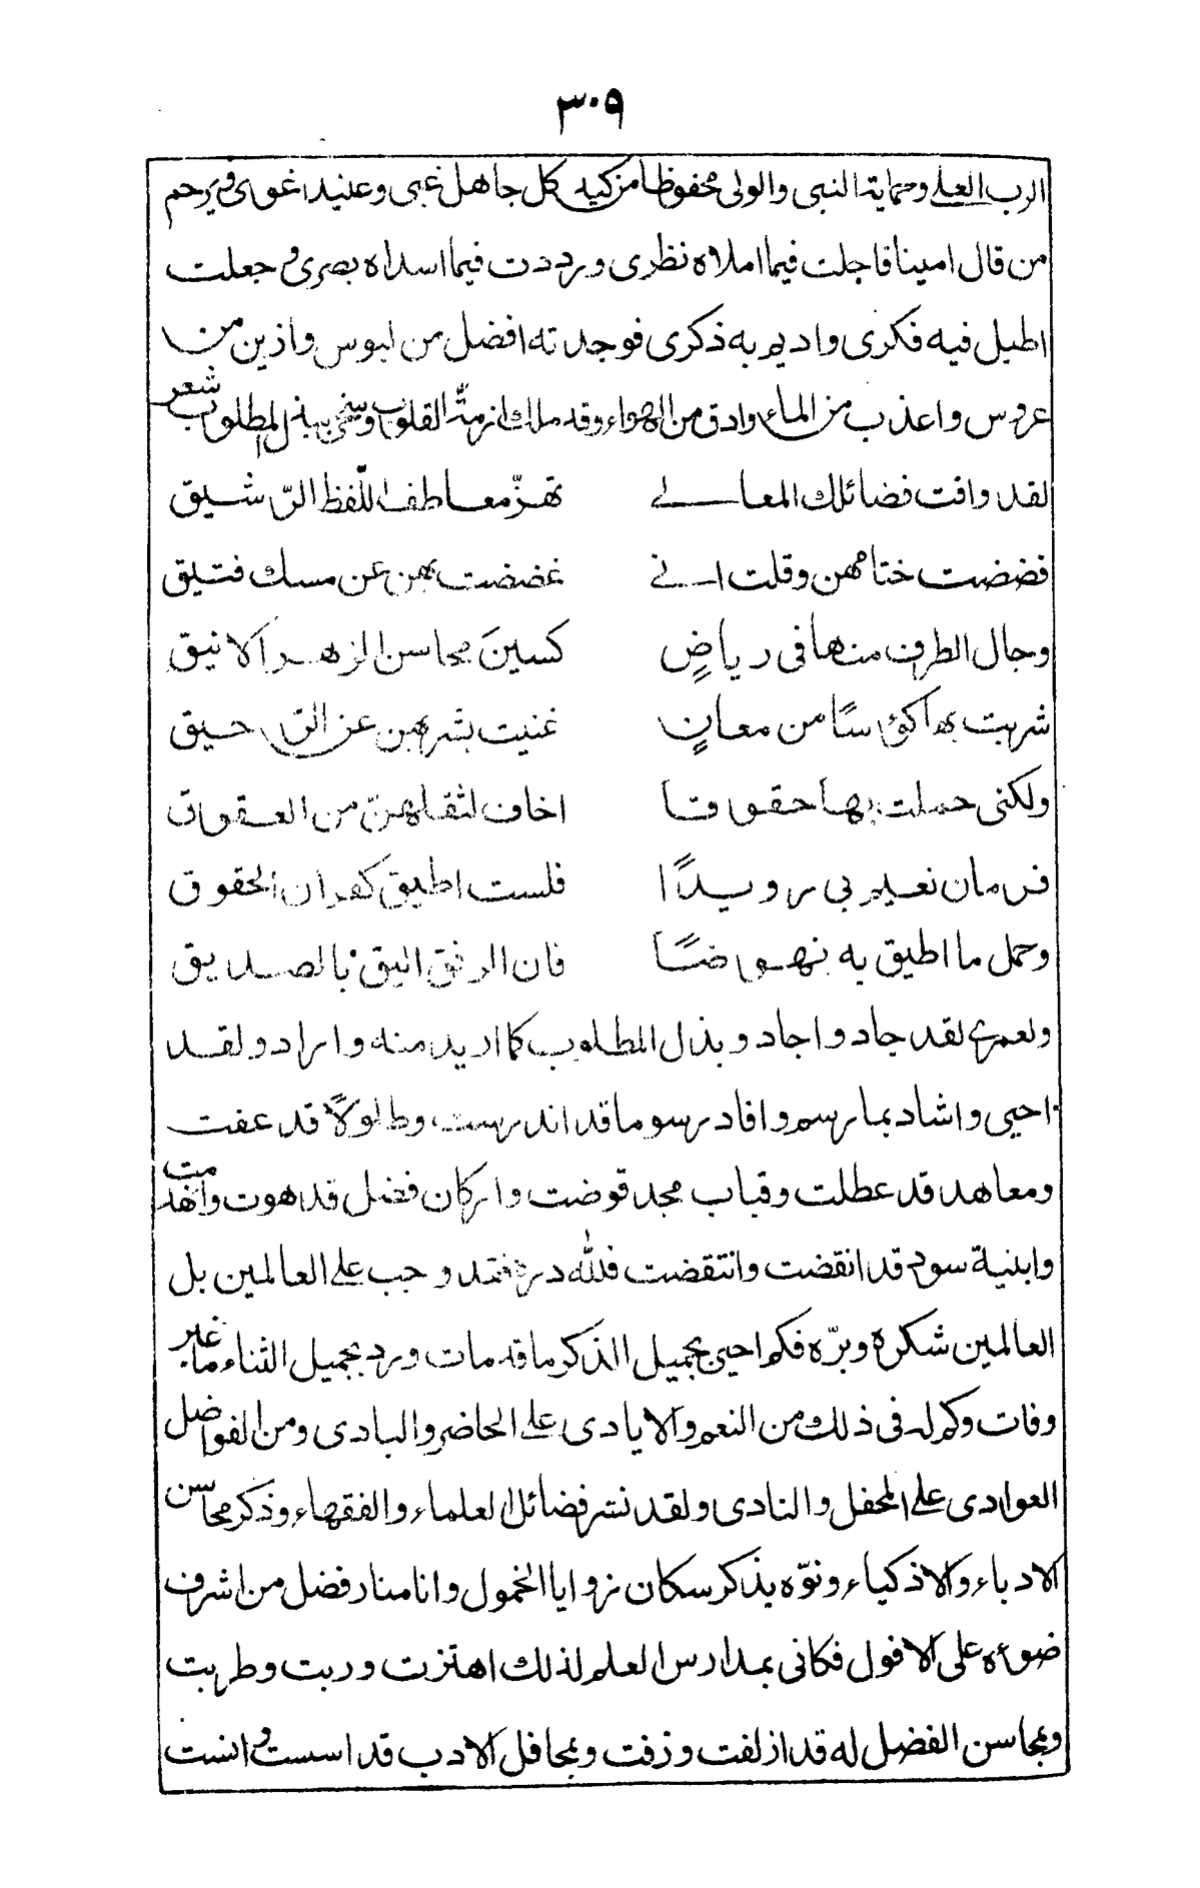 ٣٠٩
الرب العلي وحماية النبي والولي محفوظا من كيد كل جاهل غبي وعنيد اغوى ويرحم
من قال امينا فاجلت فيما املاه نظري ورددت فيما اسداه بصري وجعلت
اطيل فيه فكري واديم به ذكري فوجدته افضل من لبوس وازين من
عروس واعذب من الماء وادق من الهواء وقد ملك ازمّة القلوب وسخى ببذل المطلوب شعر
لقد وافت فضائلك المعالي تهزّ معاطف اللّفظ الرّشيق
فضضت ختامهن وقلت اني غضضت بهن عن مسك فتيق
وجال الطرف منها في رياضٍ كسينَ محاسن الزهر الانيق
شربت بها كؤسًا من معانٍ غنيت بشربهن عن الرحيق
ولكني حملت بها حقوقا اخاف لثقلهنّ من العقوق
فرمان نعيم بي رويدًا فلست اطيق كفران الحقوق
وحمل ما اطيق به نهوضًا فان الرفق اليق بالصديق
ولعمري لقد جاد واجاد وبذل المطلوب كما اريد منه واراد ولقد
احيى واشاد بما رسم وافاد رسوما قد اندرست وطلولًا قد عفت
ومعاهد قد عطلت وقباب مجد قوضت واركان فضل قد هوت وانهدمت
وابنية سودد قد انقضت وانتقضت فللّه دره فقد وجب على العالمين بل
العالمين شكره وبرّه فكم احيى بجميل الذكر ما قد مات ورد بجميل الثناء ما غبر
وفات وكم له في ذلك من النعم والايادي على الحاضر والبادي ومن الفواضل
العوادي على المحفل والنادي ولقد نشر فضائل العلماء والفقهاء وذكر محاسن
الادباء والاذكياء ونوّه بذكر سكان زوايا الخمول وانا منار فضل من اشرف
ضوءه على الافول فكاني بمدارس العلم لذلك اهتزت وربت وطربت
وبمحاسن الفضل له قد ازلفت وزفت وبمحافل الادب قد اسست وانست